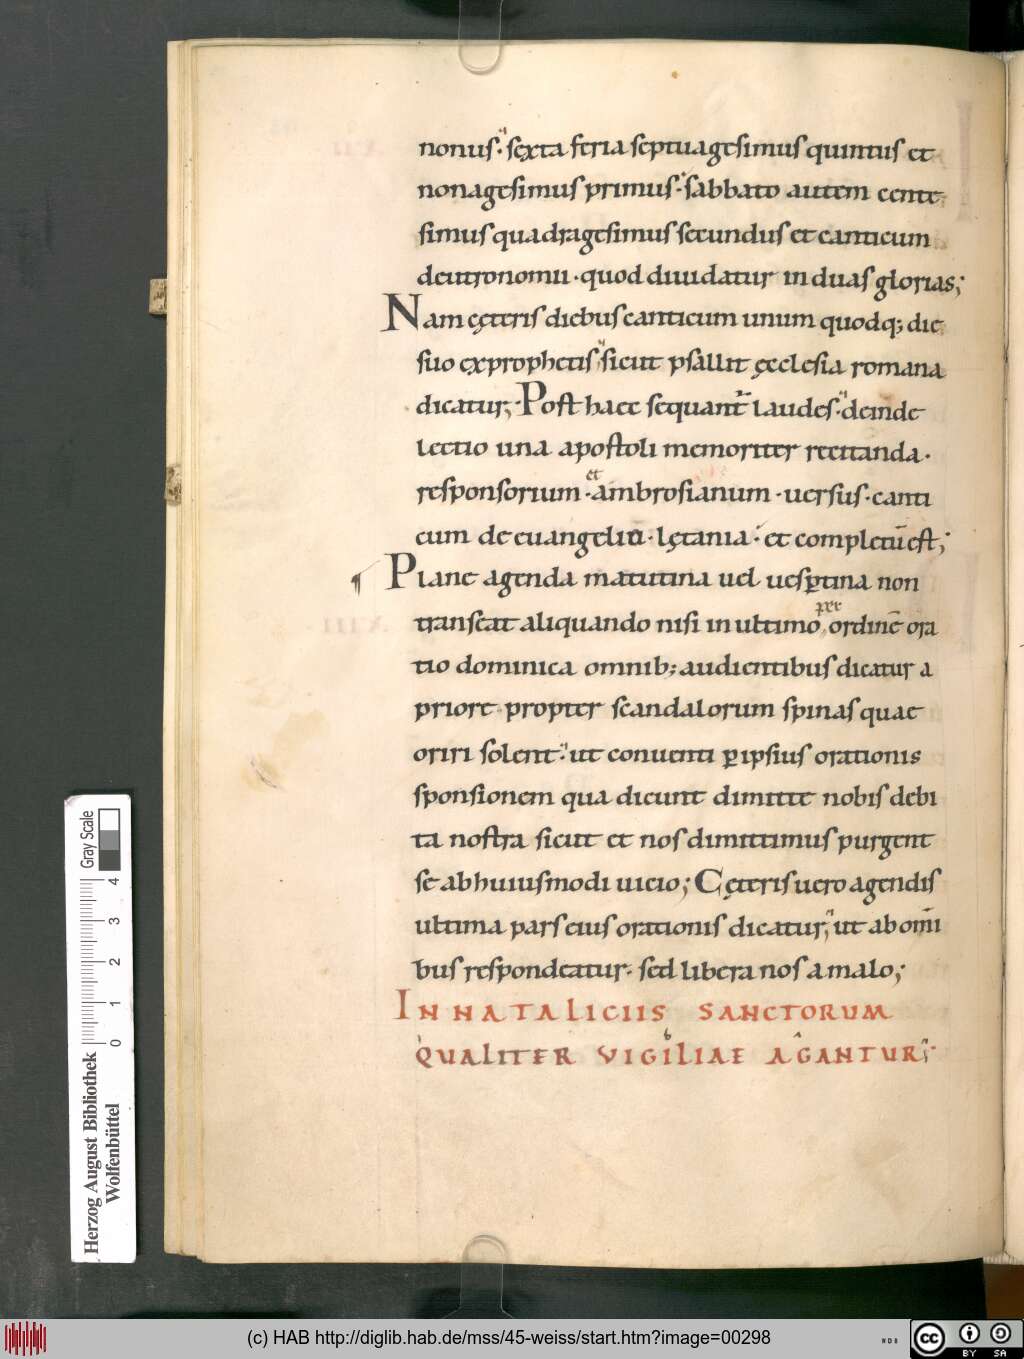 nonus· sexta feria septuagesimus quintus et
nonagesimus primus· sabbato autem cente
simus quadragesimus secundus et canticum
deutronomii· quod diuidatur in duas glorias;
Nam cęteris diebus canticum unum quodq; die
suo ex prophetis sicut psallit ęcclesia romana
dicatur; Post haec sequant̄ laudes· deinde
lectio una apostoli memoriter recitanda·
responsorium· et ambrosianum· uersus· canti
cum de euangeliū· lętania· et completū est;
Plane agenda matutina uel uesꝑtina non
transeat aliquando nisi in ultimo per ordinē ora
tio dominica omnib; audientibus dicatur a
priore propter scandalorum spinas quae
oriri solent· ut conuenti ꝑ ipsius orationis
sponsionem qua dicunt dimitte nobis debi
ta nostra sicut et nos dimittimus purgent
se ab huiusmodi uicio; Cęteris uero agendis
ultima pars eius orationis dicatur, ut ab om̄i
bus respondeatur· sed libera nos a malo;
IN NATALICIIS SANCTORUM
QUALITER VIGILIAE AGANTUR;
Herzog August Bibliothek
Wolfenbüttel
0 1 2 3 4
Gray Scale
(c) HAB http://diglib.hab.de/mss/45-weiss/start.htm?image=00298
WDB
cc
BY SA